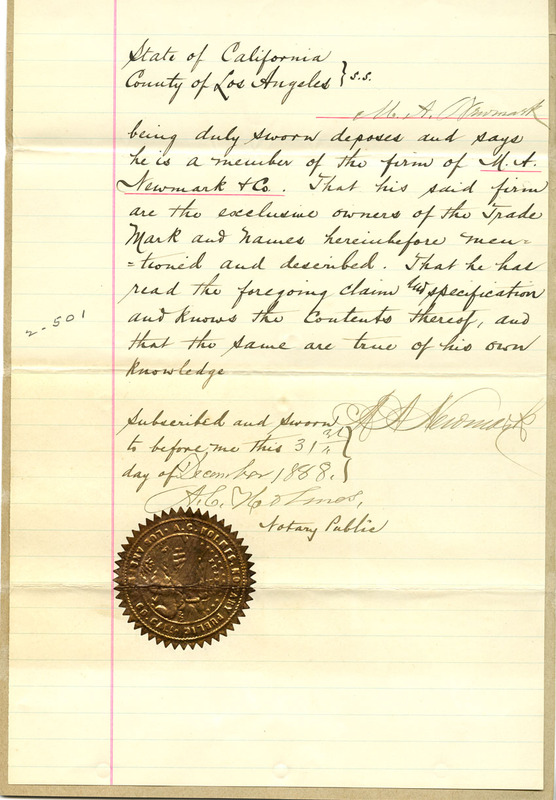 State of California
County of Los Angeles } s.s.
M. A. Newmark
being duly sworn deposes and says
he is a member of the firm of M. A.
Newmark & Co. That his said firm
are the exclusive owners of the Trade
Mark and names hereinbefore men-
-tioned and described. That he has
read the foregoing claim and specification
and knows the contents thereof, and
that the same are true of his own
knowledge
2-501
M A Newmark
Subscribed and sworn
to before me this 31st
day of December 1888.
A. C. Holmes,
Notary Public
A. C. HOLMES, NOTARY PUBLIC